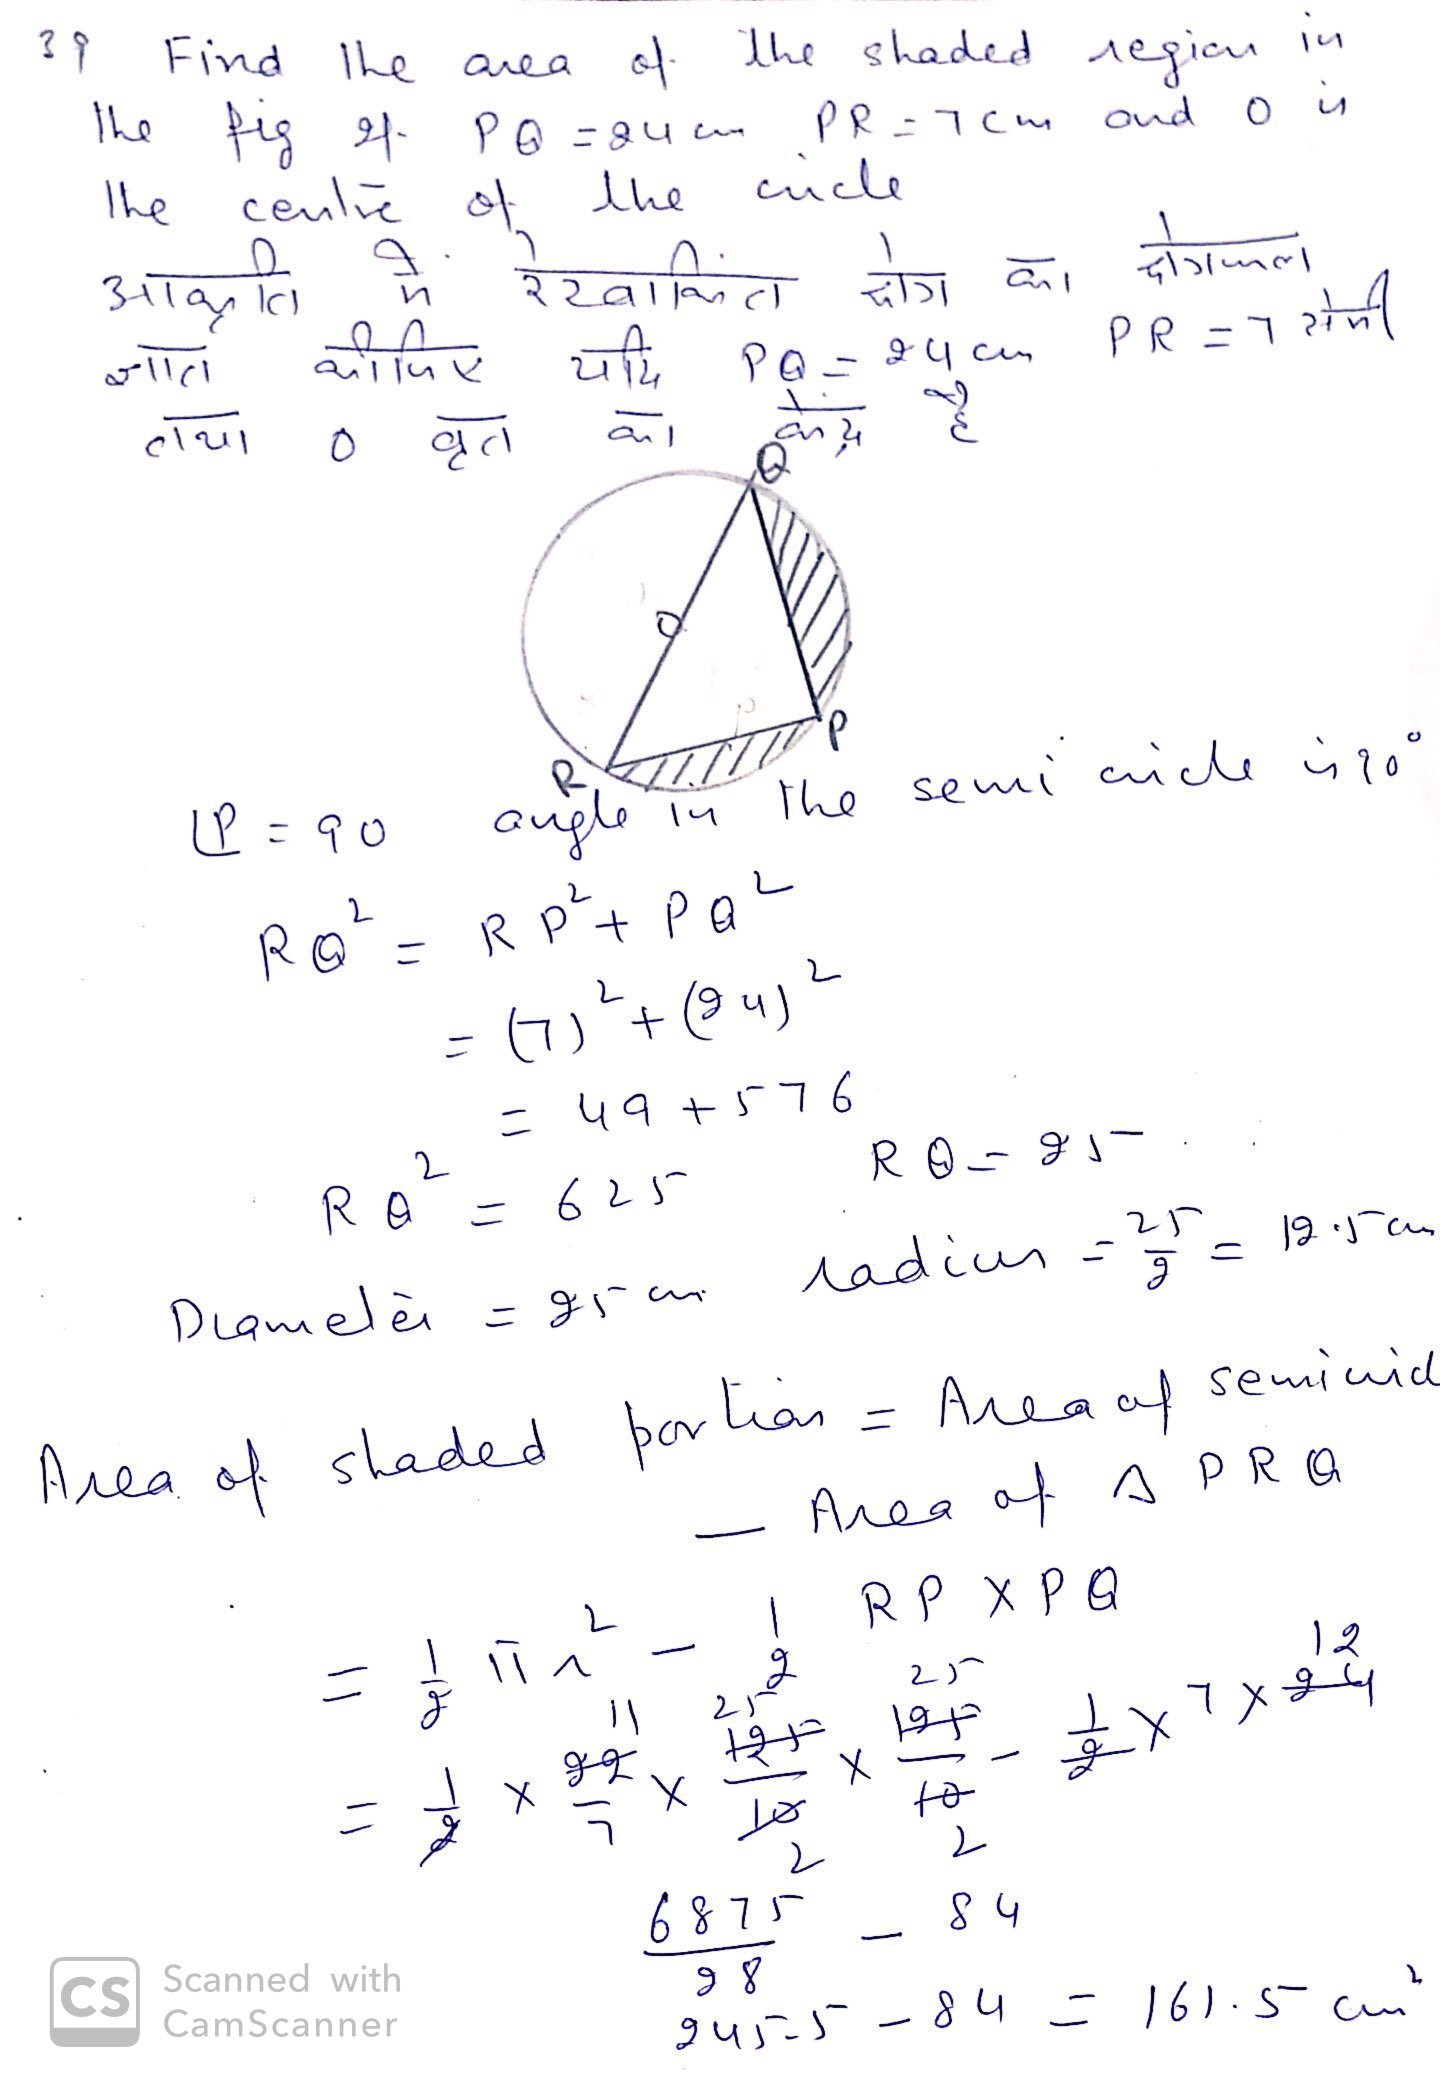 39 Find the area of the shaded region in
the fig if PQ = 24 cm PR = 7 cm and O is
the centre of the circle
आकृति में रेखांकित क्षेत्र का क्षेत्रफल
ज्ञात कीजिए यदि PQ = 24 cm PR = 7 सेमी
तथा O वृत का केन्द्र है
Q
O
P
R
∠P = 90 angle in the semi circle is 90°
RQ² = RP² + PQ²
= (7)² + (24)²
= 49 + 576
RQ² = 625 RQ = 25
Diameter = 25 cm radius = 25/2 = 12.5 cm
Area of shaded portion = Area of semicircl
— Area of Δ PRQ
= 1/2 πr² - 1/2 RP X PQ
= 1/2 × 22/7 × 125/10 × 125/10 - 1/2 × 7 × 24
11 25 25 12
2 2
6875/28 - 84
245.5 - 84 = 161.5 cm²
CS Scanned with
CamScanner